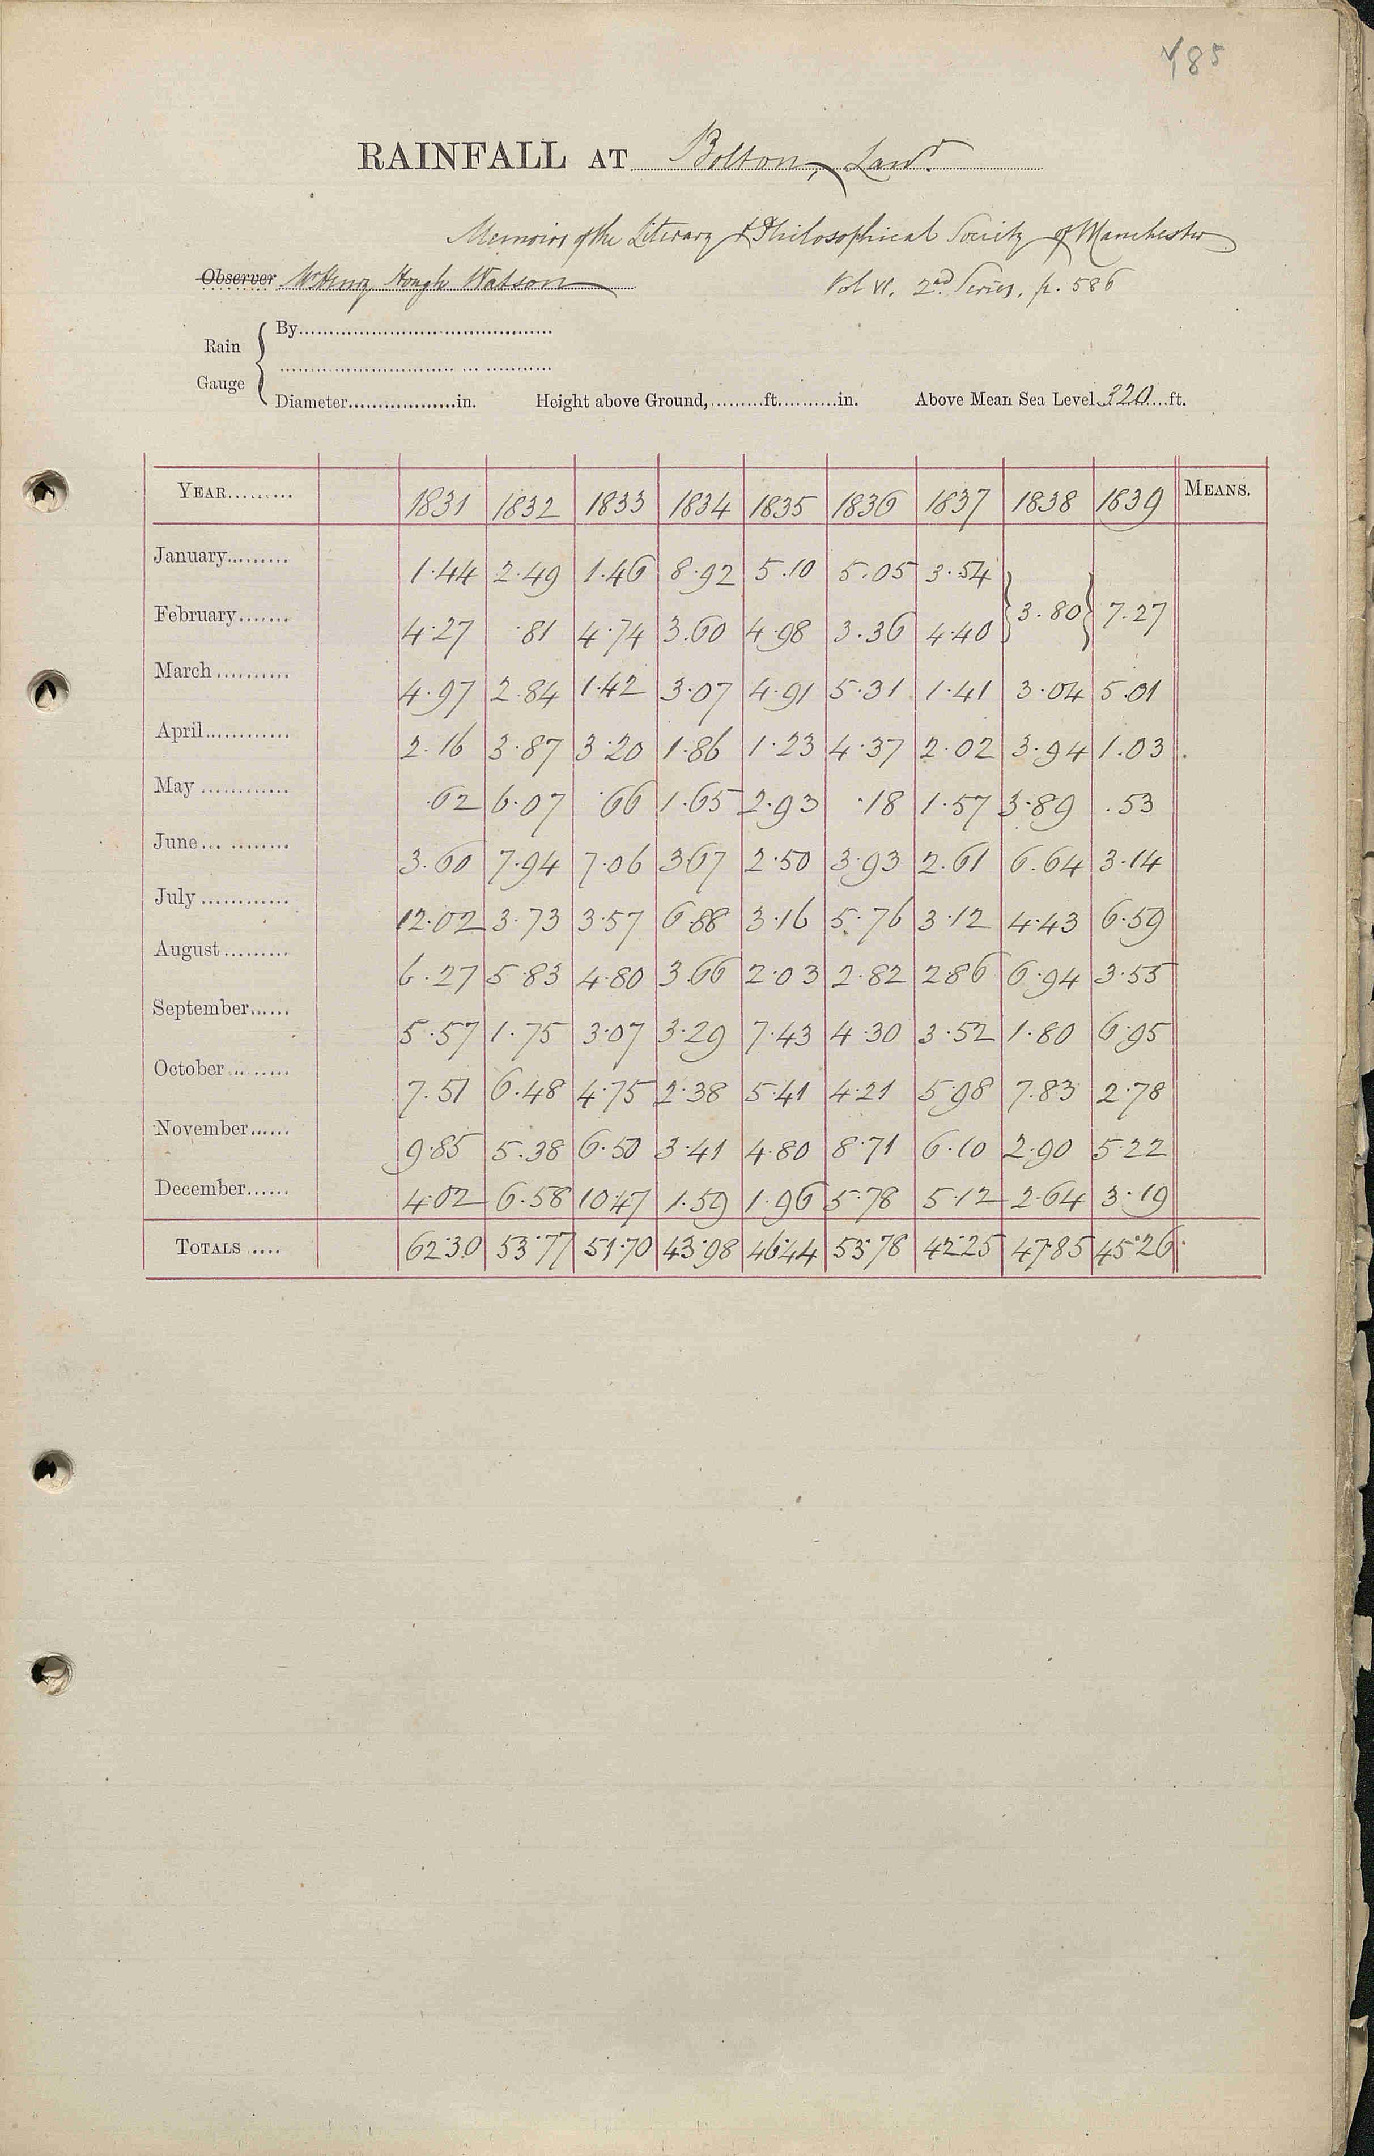 485
RAINFALL AT Bolton, Lancr.
Memoirs of the Literary & Philosophical Society of Manchester
Observer Mr Henry Hough Watson Vol VI. 2nd Series. p. 586
Rain Gauge { By
Diameter in. Height above Ground, ft. in. Above Mean Sea Level 320 ft.
YEAR 1831 1832 1833 1834 1835 1836 1837 1838 1839 MEANS.
January 1.44 2.49 1.46 8.92 5.10 5.05 3.54
} 3.80 } 7.27
February 4.27 .81 4.74 3.60 4.98 3.36 4.40
March 4.97 2.84 1.42 3.07 4.91 5.31 1.41 3.04 5.01
April 2.16 3.87 3.20 1.86 1.23 4.37 2.02 3.94 1.03
May .62 6.07 .66 1.65 2.93 .18 1.57 3.89 .53
June 3.60 7.94 7.06 3.67 2.50 3.93 2.61 6.64 3.14
July 12.02 3.73 3.57 6.88 3.16 5.76 3.12 4.43 6.59
August 6.27 5.83 4.80 3.66 2.03 2.82 2.86 6.94 3.55
September 5.57 1.75 3.07 3.29 7.43 4.30 3.52 1.80 6.95
October 7.51 6.48 4.75 2.38 5.41 4.21 5.98 7.83 2.78
November 9.85 5.38 6.50 3.41 4.80 8.71 6.10 2.90 5.22
December 4.02 6.58 10.47 1.59 1.96 5.78 5.12 2.64 3.19
TOTALS 62.30 53.77 51.70 43.98 46.44 53.78 42.25 47.85 45.26